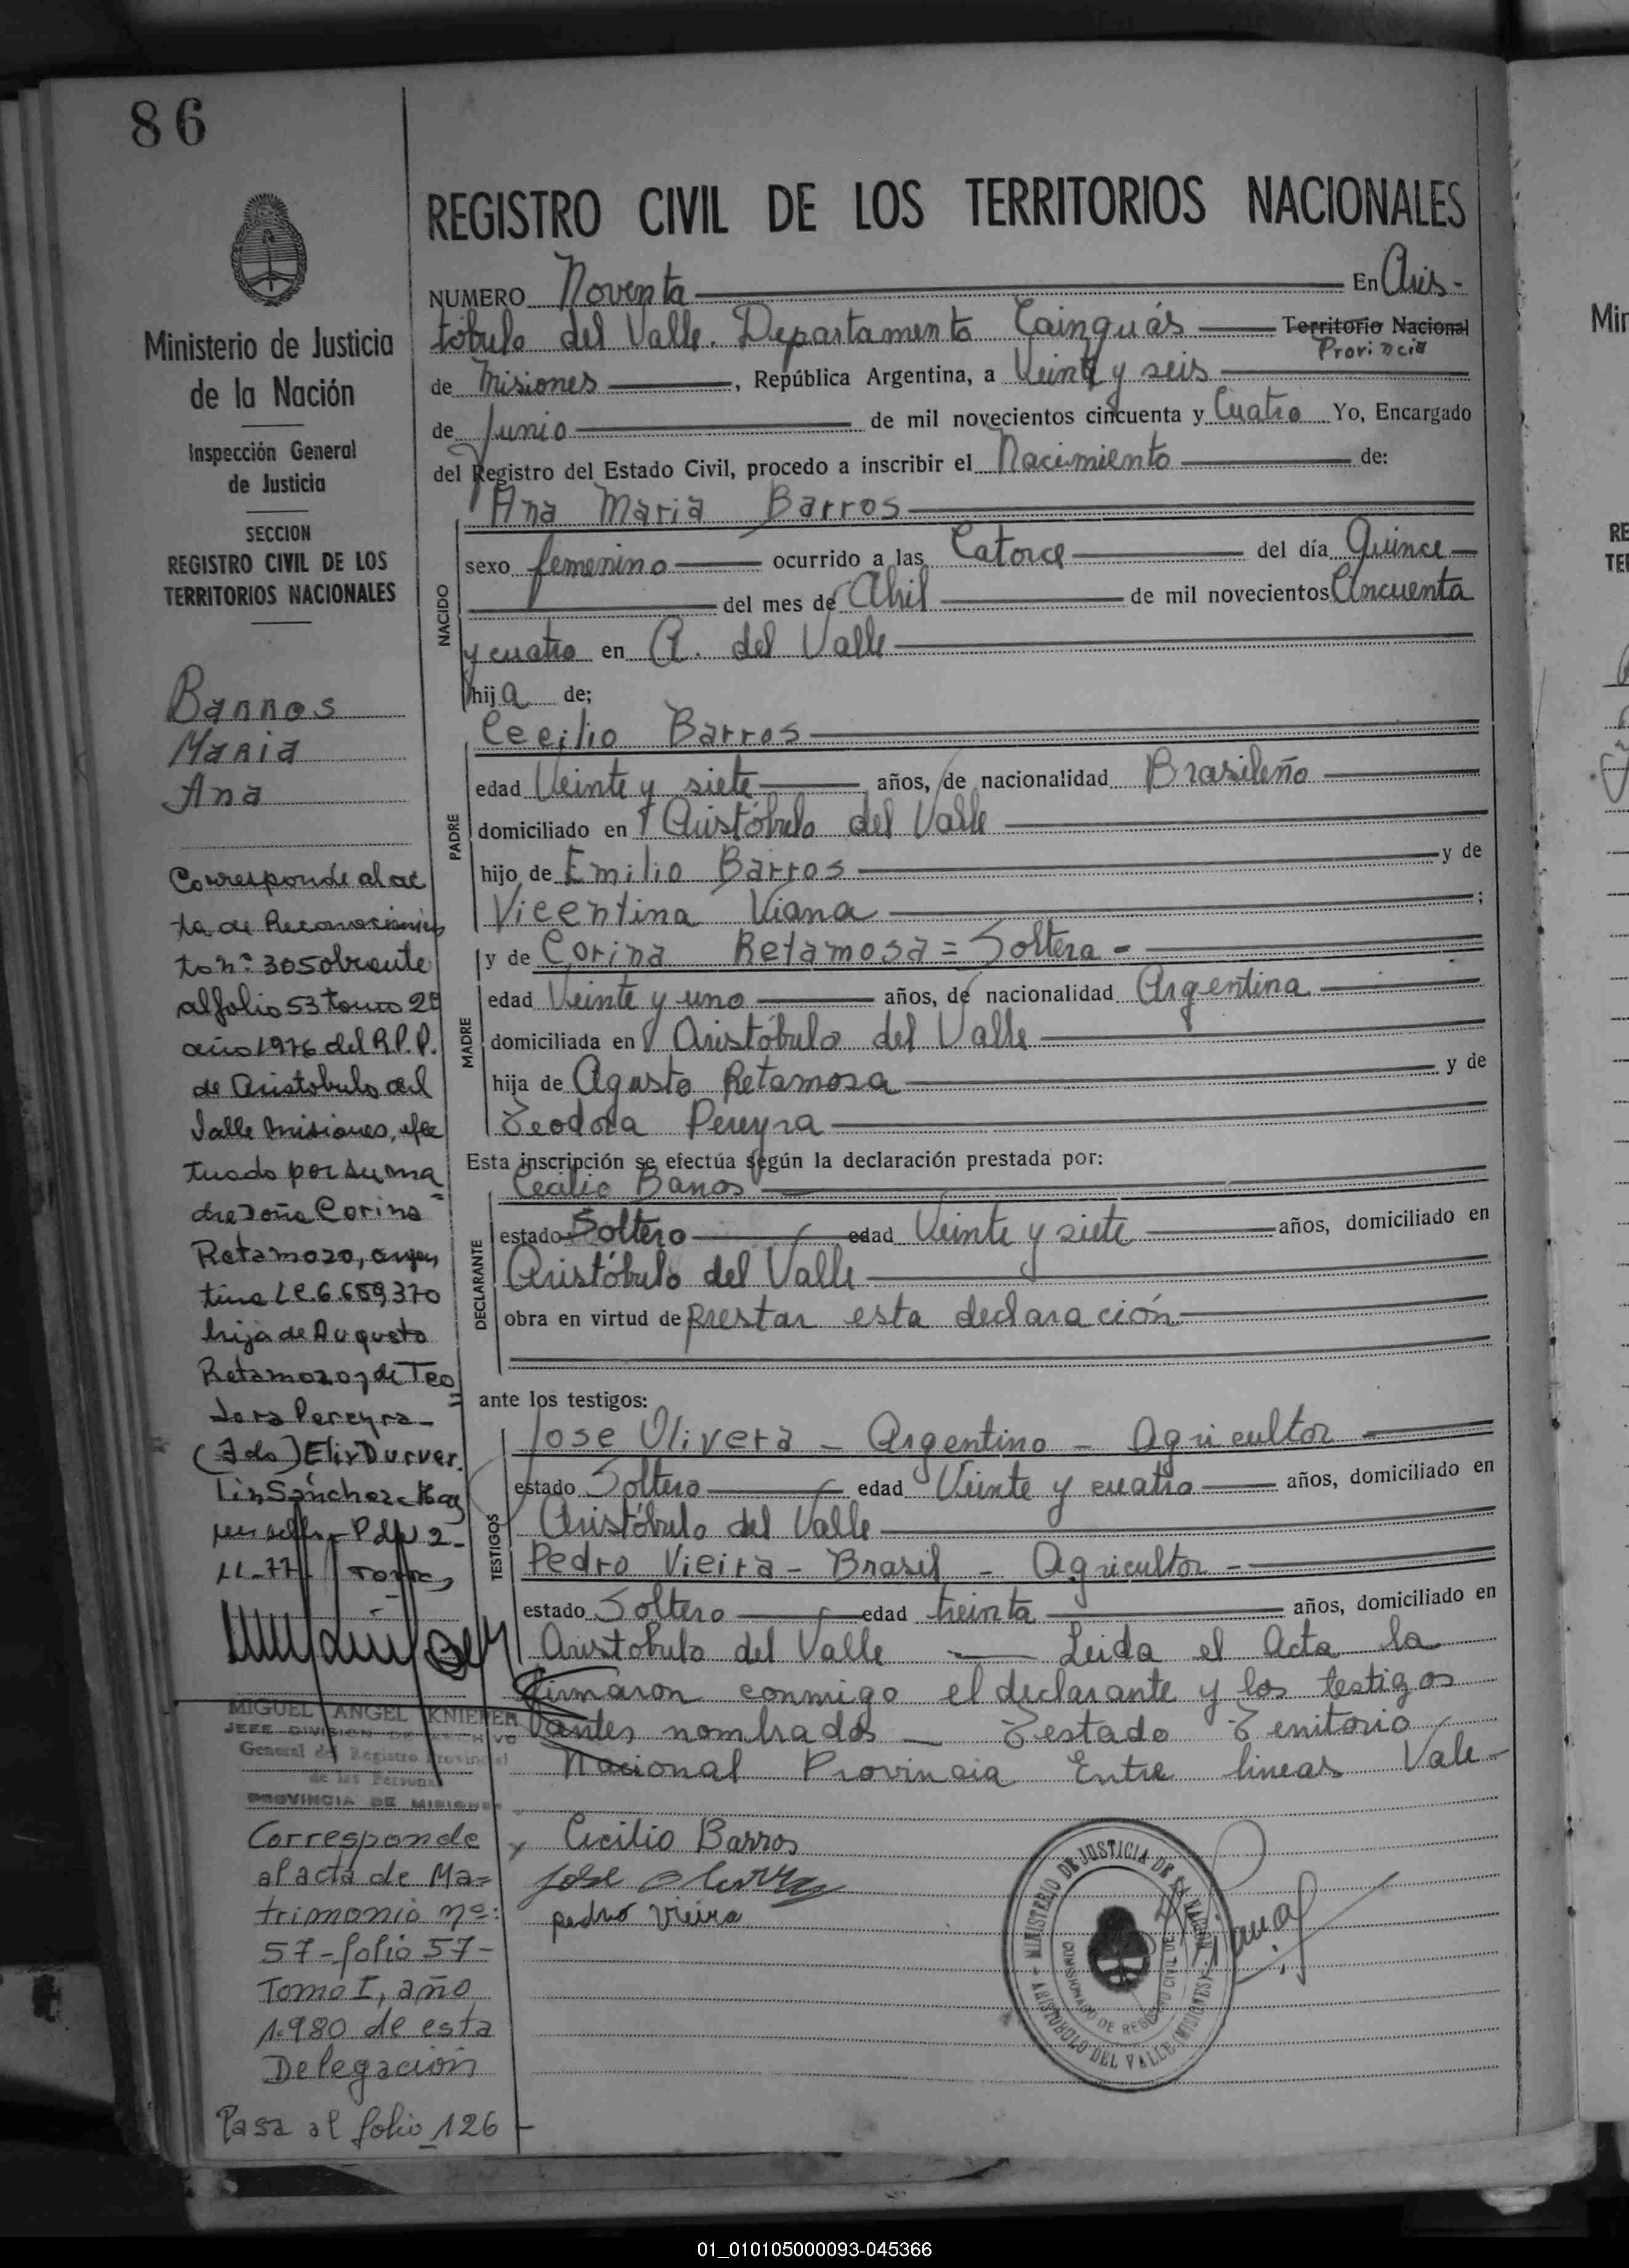 86
REGISTRO CIVIL DE LOS TERRITORIOS NACIONALES
Ministerio de Justicia
de la Nación
Inspección General
de Justicia
SECCION
REGISTRO CIVIL DE LOS
TERRITORIOS NACIONALES
Barros
Maria
Ana
Corresponde al ac
ta de Reconocimien
to nº 305 obrante
al folio 53 tomo 2º
año 1976 del R.P.P.
de Aristobulo del
Valle Misiones, efec
tuado por su ma
dre Doña Corina
Retamozo, argen
tina L.C. 6.689,370
hija de Augusto
Retamozo y de Teo
dora Pereyra-
(Fdo) Elix Durver.
Lin Sánchez. Hay
un sello.- Pdas 2-
11-77
MIGUEL ANGEL KNIEPER
JEFE DIVISION DE ARCHIVO
General del Registro Provincial
de las Personas
PROVINCIA DE MISIONES
Corresponde
al acta de Ma=
trimonio nº:
57-folio 57-
Tomo I, año
1.980 de esta
Delegación
Pasa al folio 126
NUMERO Noventa En Aris-
tóbulo del Valle. Departamento Cainguás Territorio Nacional
Provincia
de Misiones, República Argentina, a Veinte y seis
de Junio de mil novecientos cincuenta y Cuatro Yo, Encargado
del Registro del Estado Civil, procedo a inscribir el Nacimiento de:
Ana Maria Barros
NACIDO
sexo femenino ocurrido a las Catorce del día Quince
del mes de Abril de mil novecientos Cincuenta
y cuatro en A. del Valle
hija de;
Cecilio Barros
PADRE
edad Veinte y siete años, de nacionalidad Brasileño
domiciliado en Aristóbulo del Valle
hijo de Emilio Barros y de
Vicentina Viana;
y de Corina Retamosa = Soltera -
MADRE
edad Veinte y uno años, de nacionalidad Argentina
domiciliada en Aristóbulo del Valle
hija de Agusto Retamosa y de
Teodora Pereyra
Esta inscripción se efectúa según la declaración prestada por:
Cecilio Barros
DECLARANTE
estado Soltero edad Veinte y siete años, domiciliado en
Aristóbulo del Valle
obra en virtud de prestar esta declaración
ante los testigos:
Jose Olivera - Argentino - Agricultor
TESTIGOS
estado Soltero edad Veinte y cuatro años, domiciliado en
Aristóbulo del Valle
Pedro Vieira - Brasil - Agricultor -
estado Soltero edad treinta años, domiciliado en
Aristobulo del Valle — Leida el Acta la
firmaron conmigo el declarante y los testigos
antes nombrados — Testado Territorio
Nacional Provincia Entre lineas Vale-
Cecilio Barros
Jose Olivera
pedro Vieira
MINISTERIO DE JUSTICIA DE LA NACION
COMISIONADO DE REGISTRO CIVIL DE
ARISTOBOLO DEL VALLE (MISIONES)
Min
RE
TE
01_010105000093-045366